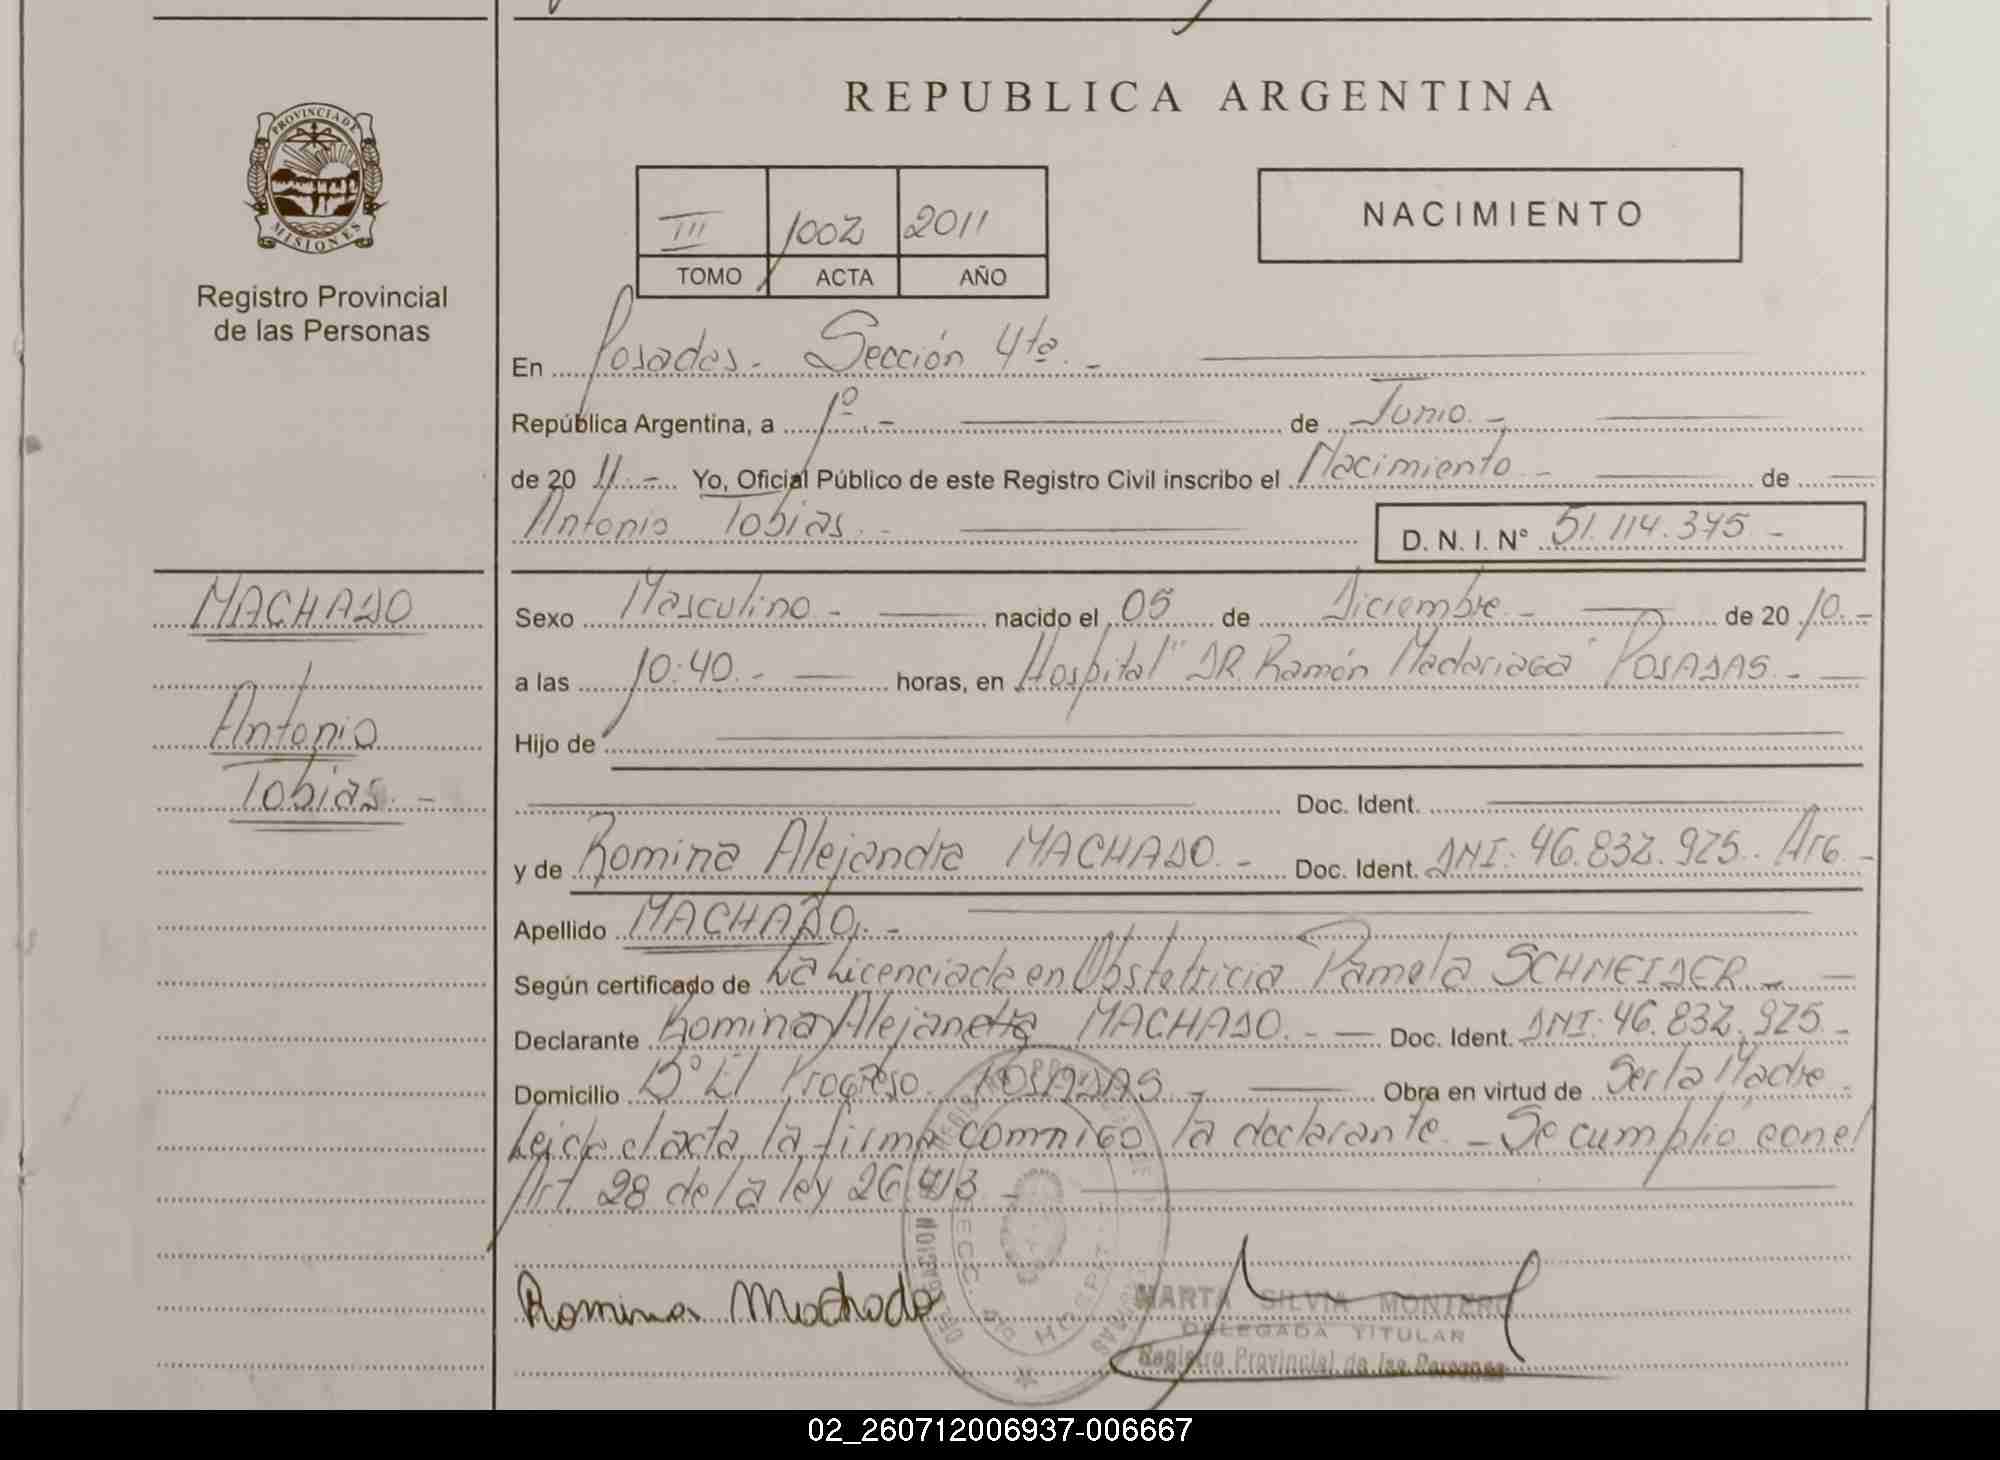 REPUBLICA ARGENTINA
PROVINCIA DE
MISIONES
Registro Provincial
de las Personas
III 1002 2011
TOMO ACTA AÑO
NACIMIENTO
En Posadas.- Sección 4ta.-
República Argentina, a 1º.- de Junio.-
de 20 11.- Yo, Oficial Público de este Registro Civil inscribo el Nacimiento.- de
Antonio Tobias.- D. N. I. Nº 51.114.375.-
MACHADO
Antonio
Tobias.-
Sexo Masculino.- nacido el 05 de Diciembre.- de 20 10.-
a las 10:40.- horas, en Hospital "DR. Ramón Madariaga" POSADAS.-
Hijo de
Doc. Ident.
y de Romina Alejandra MACHADO.- Doc. Ident. DNI: 46.832.925.- Arg.-
Apellido MACHADO.-
Según certificado de La Licenciada en Obstetricia Pamela SCHNEIDER.-
Declarante Romina Alejandra MACHADO.- Doc. Ident. DNI: 46.832.925.-
Domicilio Bº El Progreso. POSADAS.- Obra en virtud de Ser la Madre.
Leída el acta, la firma conmigo la declarante.- Se cumplió con el
Art. 28 de la ley 26.413.-
Romina Machado
MARTA SILVIA MONTERO
DELEGADA TITULAR
Registro Provincial de las Personas
02_260712006937-006667